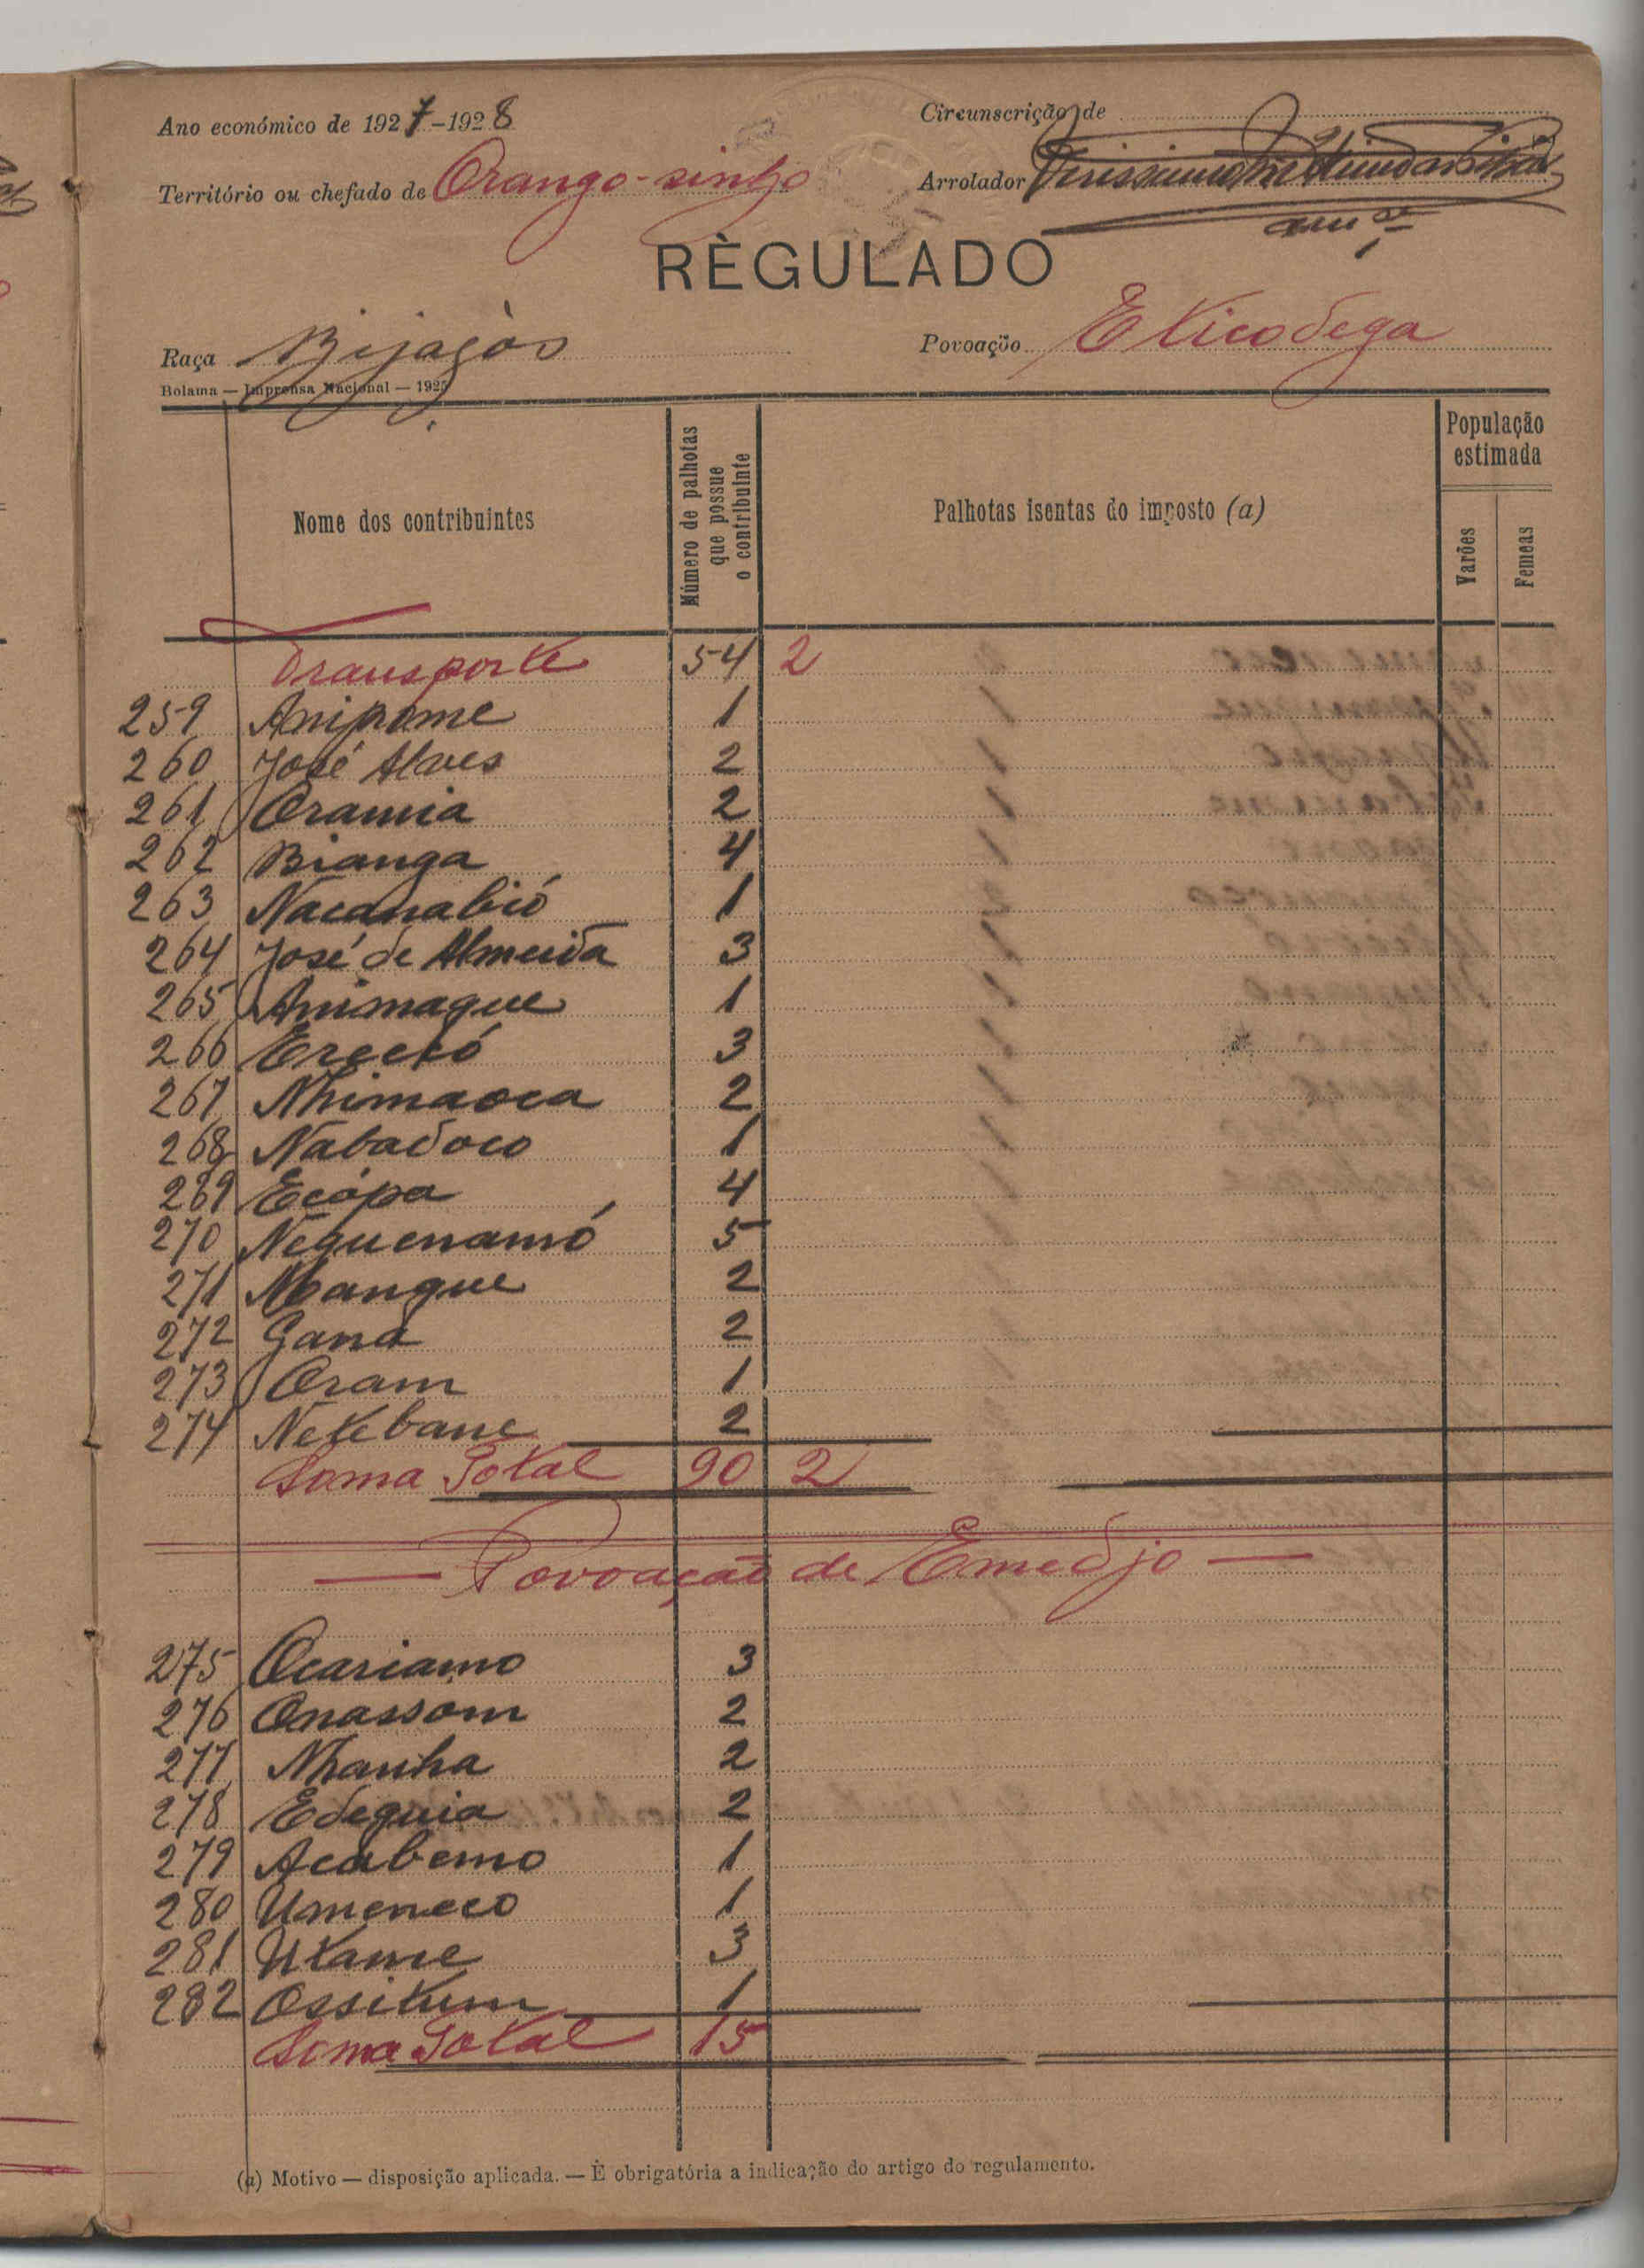 Ano económico de 1927-1928
Circunscrição de
Território ou chefado de Orango-sinho
Arrolador
RÈGULADO
Raça Bijagós
Povoação Eticodega
Bolama — Imprensa Nacional — 1925
Nome dos contribuintes
Número de palhotas que possue o contribuinte
Palhotas isentas do imposto (a)
População estimada
Varões
Femeas
Transporte 54 2
259 Anipome 1
260 José Alves 2
261 Oramia 2
262 Bianga 4
263 Nacanabió 1
264 José de Almeida 3
265 Animaque 1
266 3
267 Nhimaoca 2
268 Nabadoco 1
269 Ecópa 4
270 Nequenamó 5
271 Mbangue 2
272 Gana 2
273 Oram 1
274 Netebane 2
Soma Total 90 2
— Povoação de Emedjo —
275 Ocariamo 3
276 Onassom 2
277 Nhanha 2
278 Edeguia 2
279 Acabemo 1
280 Umeneco 1
281 Utame 3
282 Ossitum 1
Soma Total 15
(a) Motivo — disposição aplicada. — È obrigatória a indicação do artigo do regulamento.